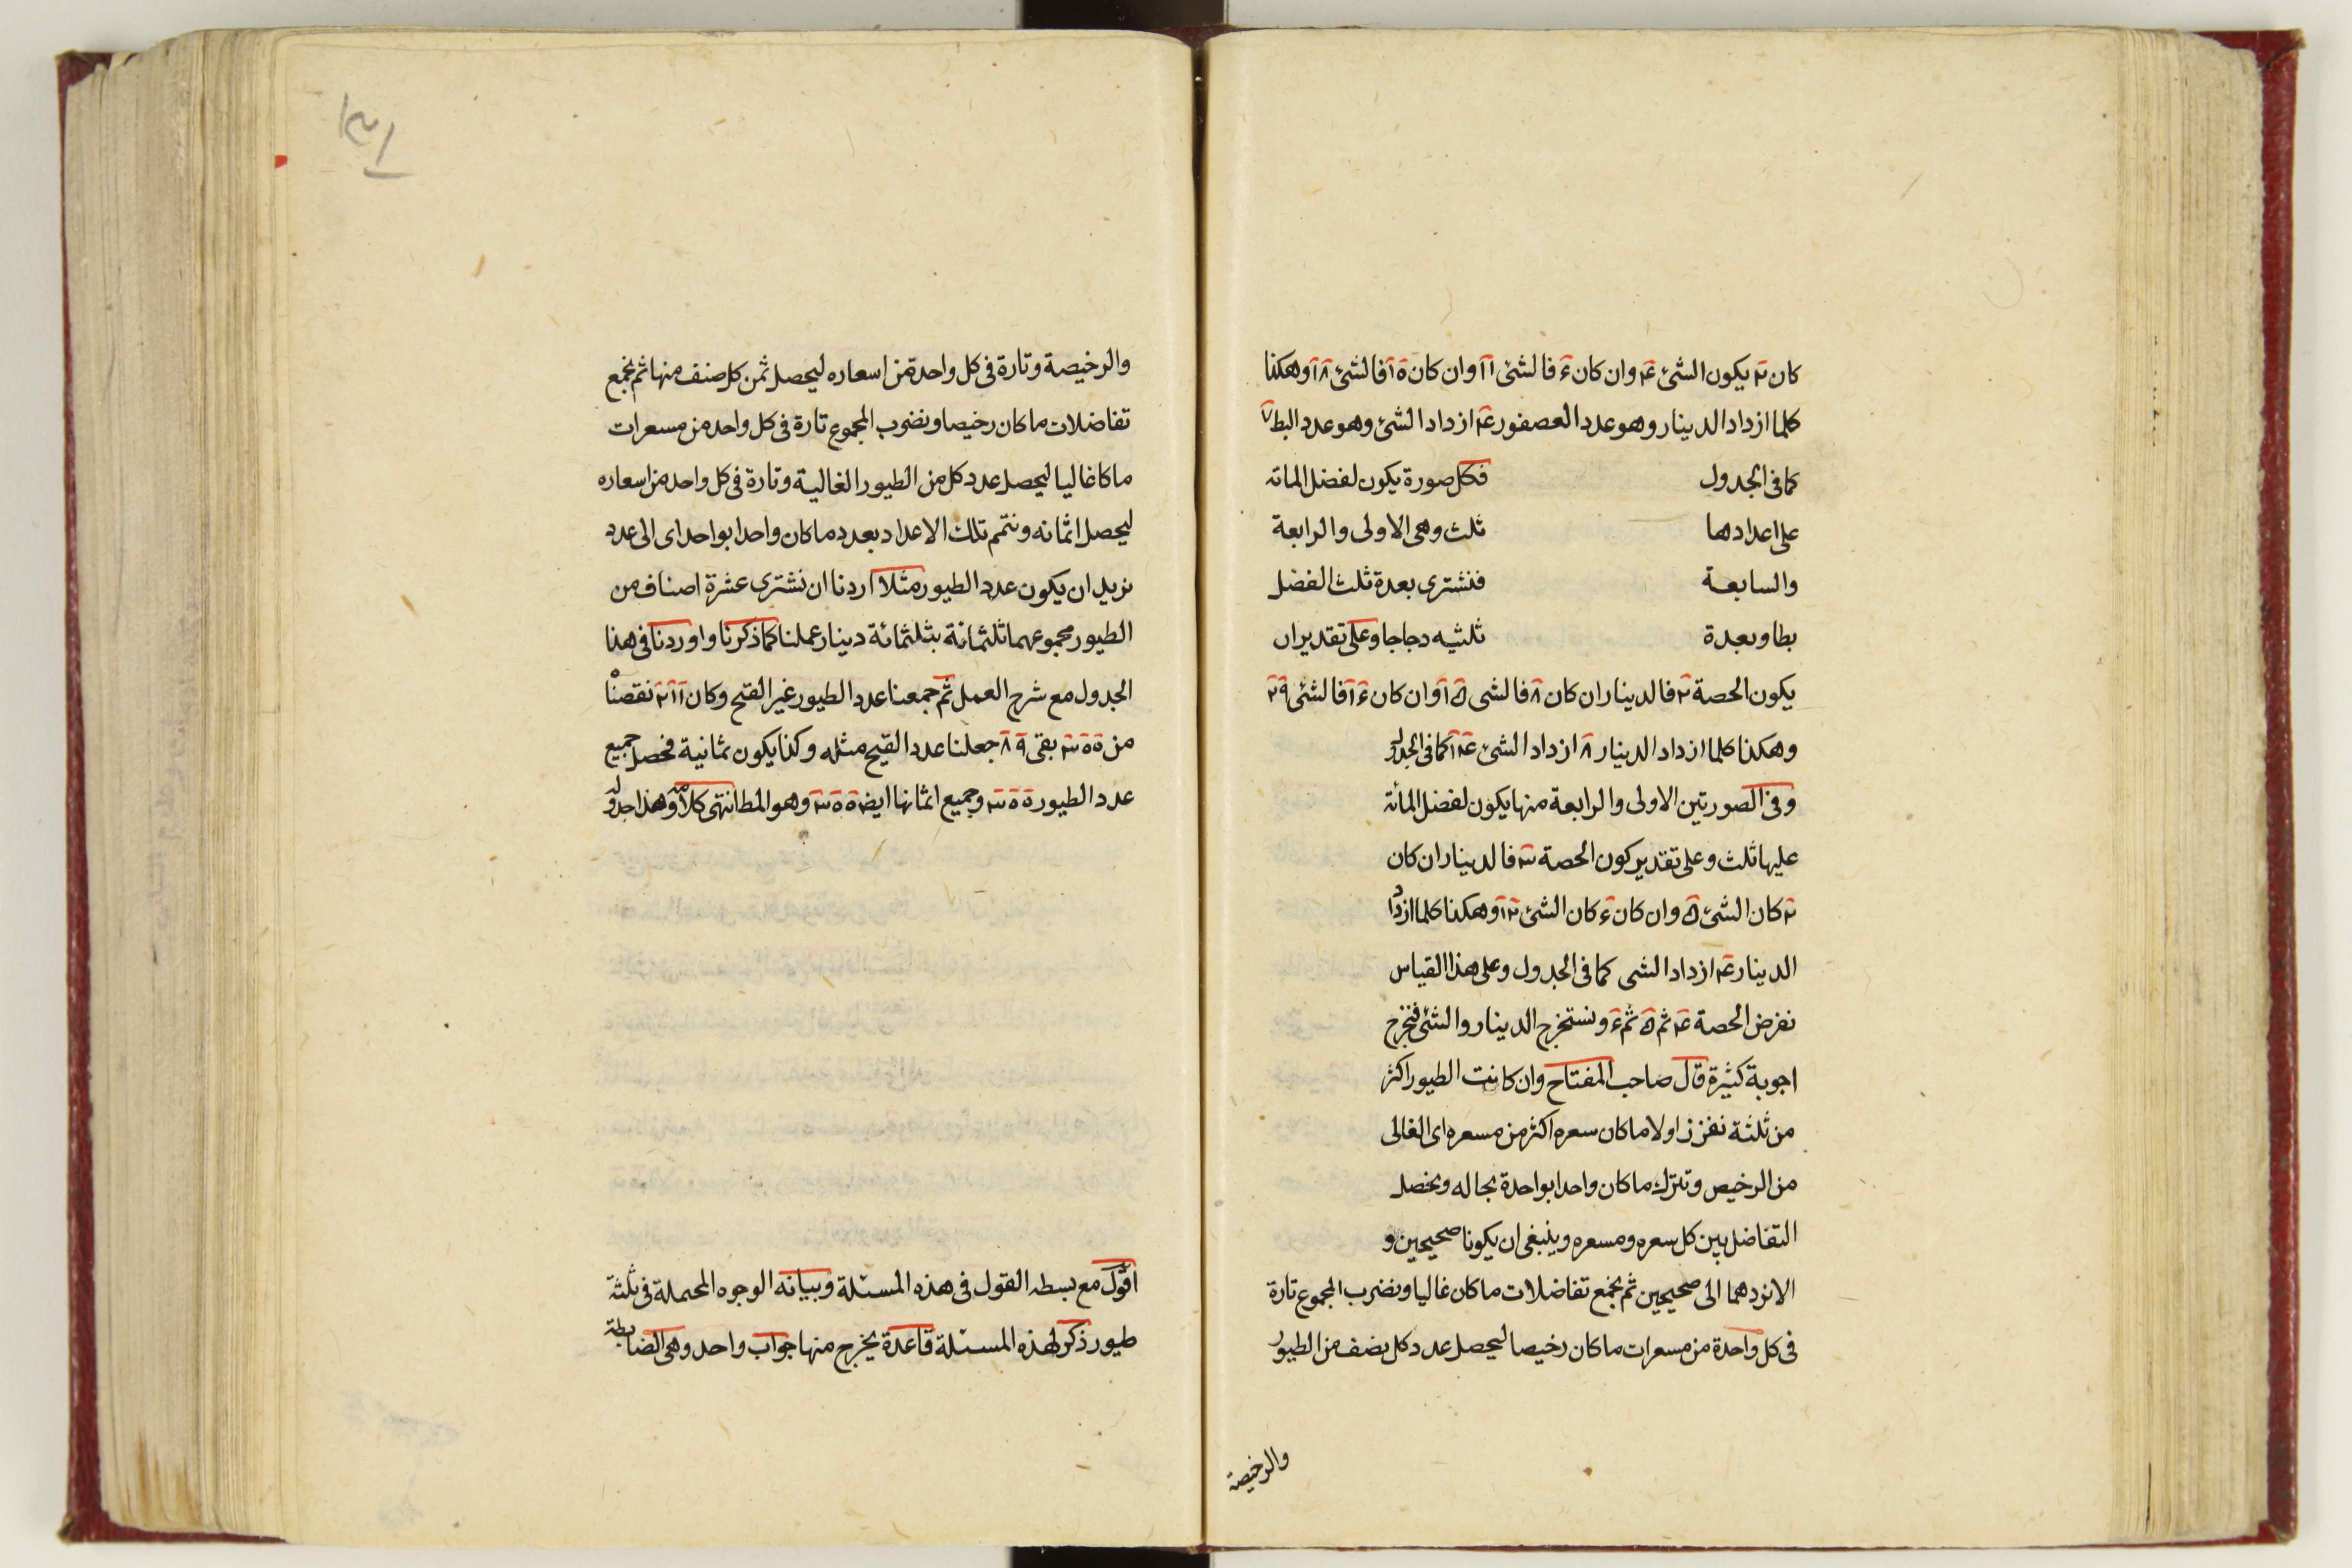 كان ٢ يكون الشئ ٤ وان كان ٤ فالشئ ١١ وان كان ١٥ فالشئ ١٨ وهكذا
كلما ازداد الدينار وهو عدد العصفور ٤ ازداد الشئ وهو عدد البط ٧
كما فى الجدول فكل صورة يكون لفضل المائة
على اعدادها ثلث وهى الاولى والرابعة
والسابعة فنشترى بعدة ثلث الفضل
بطا وبعدة ثلثيه دجاجا وعلى تقدير ان
يكون الحصة ٢ فالدينار ان كان ٨ فالشى ١٥ وان كان ١٦ فالشئ ٢٩
وهكذا كلما ازداد الدينار ٨ ازداد الشئ ١٤ كما فى الجدول
وفى الصورتين الاولى والرابعة منها يكون لفضل المأئة
عليها ثلث وعلى تقدير كون الحصة ٣ فالدينار ان كان
٢ كان الشئ ٥ وان كان كان الشئ ١٢ وهكذا كلما ازداد
الدينار ٤ ازداد الشى كما فى الجدول وعلى هذا القياس
نفرض الحصة ٤ ثم ٥ ثم ٦ ونستخرج الدينار والشئ فنخرج
اجوبة كثيرة قال صاحب المفتاح وان كانت الطيور اكثر
من ثلثة نفرز اولا ما كان سعره اكثر من مسعره اى الغالى
من الرخيص ونترك ما كان واحدا بواحدة بحاله ونحصل
التفاضل بين كل سعره ومسعره وينبغى ان يكونا صحيحين و
الا نردهما الى صحيحين ثم نجمع تفاضلات ما كان غاليا ونضرب المجموع تارة
فى كل واحدة من مسعرات ما كان رخيصا ليحصل عدد كل نصف من الطيور
والرخيصة
والرخيصة وتارة فى كل واحدة من اسعاره ليحصل ثمن كل صنف منها ثم نجمع
تفاضلات ما كان رخيصا ونضرب المجموع تارة فى كل واحد من مسعرات
ما كا غاليا ليحصل عدد كل من الطيور الغالية وتارة فى كل واحد من اسعاره
ليحصل اثمانه ونتمم تلك الاعداد بعدد ما كان واحدا بواحد اى الى عدد
نريد ان يكون عدد الطيور مثلا اردنا ان نشترى عشرة اصناف من
الطيور مجموعهما ثلثمائة بثلثمائة دينار عملنا كما ذكرنا واوردنا فى هذا
الجدول مع شرح العمل ثم جمعنا عدد الطيور غير القبح وكان ٢١١ نقصناه
من ٣٠٠ بقى ٨٩ جعلنا عدد القبح مثله وكذا يكون ثمانية فحصل جميع
عدد الطيور ٣٠٠ وجميع اثمانها ايضه ٣٠٠ وهو المط انتهى كلامه وهذا جدوله
اقول مع بسطه القول فى هذه المسئلة وبيانه الوجوه المحملة فى ثلثة
طيور ذكر لهذه المسئلة قاعدة يخرج منها جواب واحد وهى الضابطة